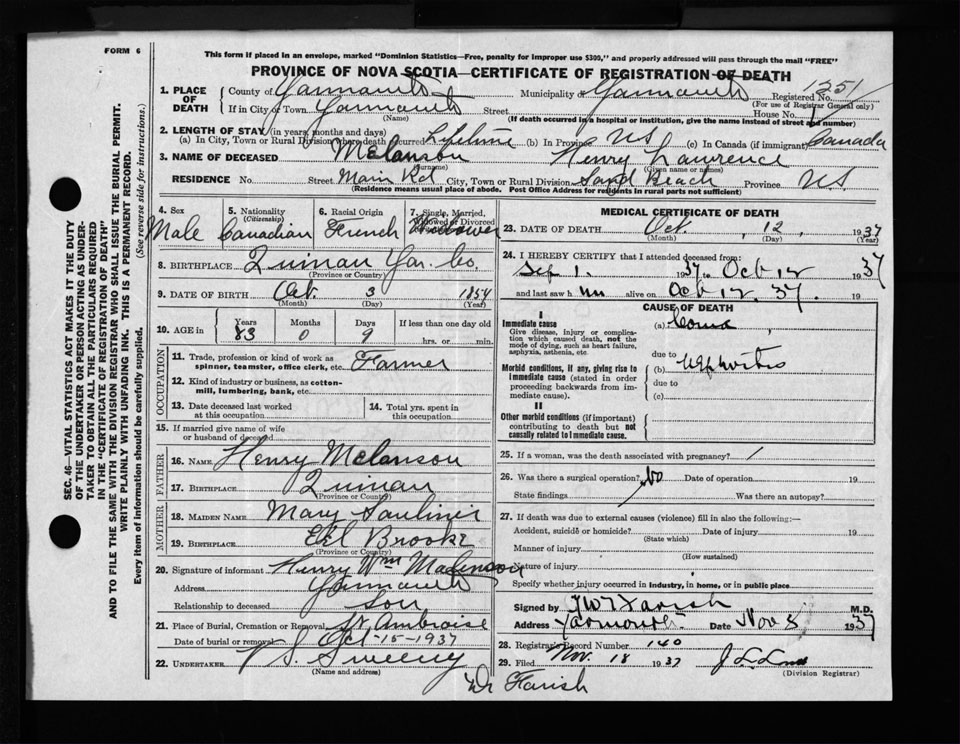 FORM 6
This form if placed in an envelope, marked "Dominion Statistics—Free, penalty for improper use $300," and properly addressed will pass through the mail "FREE"
PROVINCE OF NOVA SCOTIA—CERTIFICATE OF REGISTRATION OF DEATH
1. PLACE OF DEATH
County of Yarmouth Municipality of Yarmouth Registered No. 1251
(For use of Registrar General only)
If in City or Town Yarmouth Street House No.
(Name) (If death occurred in a hospital or institution, give the name instead of street and number)
2. LENGTH OF STAY (in years, months and days)
(a) In City, Town or Rural Division where death occurred Lifetime (b) In Province NS (c) In Canada (if immigrant) Canada
3. NAME OF DECEASED Melanson Henry Lawrence
(Surname) (Given name or names)
RESIDENCE No. Street Main Rd City, Town or Rural Division Sand Beach Province N.S
(Residence means usual place of abode. Post Office Address for residents in rural parts not sufficient)
4. Sex Male
5. Nationality (Citizenship) Canadian
6. Racial Origin French
7. Single, Married, Widowed or Divorced Widower
8. BIRTHPLACE Quinan Yar. Co.
(Province or Country)
9. DATE OF BIRTH Oct. 3 1854
(Month) (Day) (Year)
10. AGE in Years Months Days If less than one day old
83 0 9 hrs. or min.
OCCUPATION
11. Trade, profession or kind of work as spinner, teamster, office clerk, etc. Farmer
12. Kind of industry or business, as cotton-mill, lumbering, bank, etc.
13. Date deceased last worked at this occupation
14. Total yrs. spent in this occupation
15. If married give name of wife or husband of deceased
FATHER
16. NAME Henry Melanson
17. BIRTHPLACE Quinan
(Province or Country)
MOTHER
18. MAIDEN NAME Mary Saulnier
19. BIRTHPLACE Eel Brook
(Province or Country)
20. Signature of informant Henry Wm Melanson
Address Yarmouth
Relationship to deceased Son
21. Place of Burial, Cremation or Removal St. Ambroise
Date of burial or removal Oct-15-1937
22. UNDERTAKER V S. Sweeny
(Name and address)
Dr Farish
MEDICAL CERTIFICATE OF DEATH
23. DATE OF DEATH Oct. 12, 1937
(Month) (Day) (Year)
24. I HEREBY CERTIFY that I attended deceased from:
Sep 1. 1937 to Oct 12 1937
and last saw him alive on Oct 12. 37. 19
CAUSE OF DEATH
I
Immediate cause (a) Coma
Give disease, injury or complication which caused death, not the mode of dying, such as heart failure, asphyxia, asthenia, etc
due to
Morbid conditions, if any, giving rise to immediate cause (stated in order proceeding backwards from immediate cause). (b) Nephritis
due to
(c)
II
Other morbid conditions (if important) contributing to death but not causally related to immediate cause.
25. If a woman, was the death associated with pregnancy? /
26. Was there a surgical operation? No Date of operation 19
State findings Was there an autopsy?
27. If death was due to external causes (violence) fill in also the following:—
Accident, suicide or homicide? Date of injury 19
(State which)
Manner of injury
(How sustained)
Nature of injury
Specify whether injury occurred in industry, in home, or in public place
Signed by Farish M.D.
Address Yarmouth Date Nov 8 1937
28. Registrar's Record Number 140
29. Filed Nov. 18 1937
(Division Registrar)
SEC. 46—VITAL STATISTICS ACT MAKES IT THE DUTY
OF THE UNDERTAKER OR PERSON ACTING AS UNDER-
TAKER TO OBTAIN ALL THE PARTICULARS REQUIRED
IN THE "CERTIFICATE OF REGISTRATION OF DEATH"
AND TO FILE THE SAME WITH THE DIVISION REGISTRAR WHO SHALL ISSUE THE BURIAL PERMIT.
WRITE PLAINLY WITH UNFADING INK. THIS IS A PERMANENT RECORD.
Every item of information should be carefully supplied. (See reverse side for instructions.)